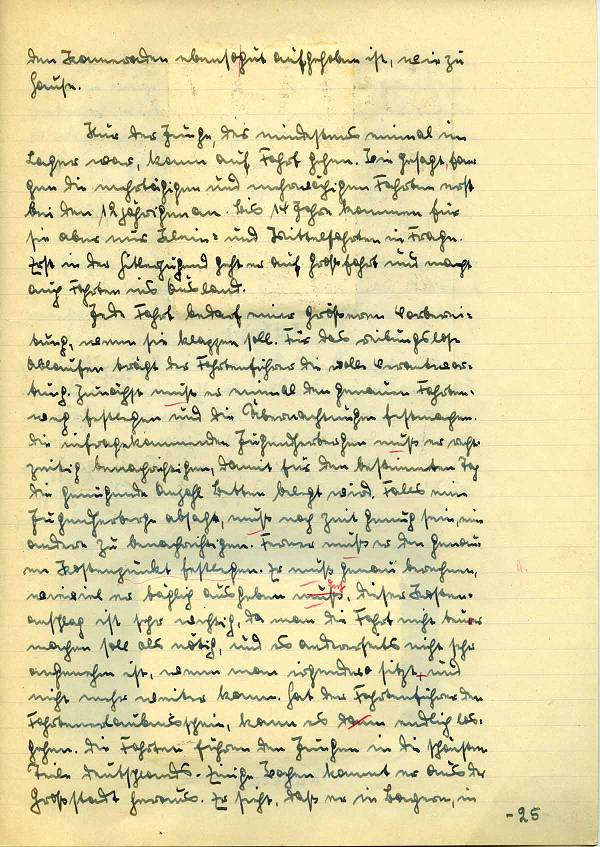 den Kameraden ebensogut aufgehoben ist, wie zu
Hause.
Nur der Junge, der mindestens einmal im
Lager war, kann auf Fahrt gehen. Wie gesagt, fan-
gen die mehrtägigen und mehrwöchigen Fahrten erst
bei den 12 jährigen an. Bis 14 Jahre kommen für
sie aber nur Klein- und Mittelfahrten in Frage.
Erst in der Hitlerjugend geht er auf Großfahrt und macht
auch Fahrten ins Ausland.
Jede Fahrt bedarf einer größeren Vorberei-
tung, wenn sie klappen soll. Für das reibungslose
Ablaufen trägt der Fahrtenführer die volle Verantwor-
tung. Zunächst muß er einmal den genauen Fahrten-
weg festlegen und die Übernachtungen festmachen.
Die infragekommenden Jugendherbergen muß er recht-
zeitig benachrichtigen, damit für den bestimmten Tag
die genügende Anzahl Betten belegt wird. Falls eine
Jugendherberge absagt, muß noch Zeit genug sein, eine
andere zu benachrichtigen. Ferner muß er den genau-
en Kostenpunkt festlegen. Er muß genau berechnen,
wieviel er täglich ausgeben muß darf. Dieser Kosten-
anschlag ist sehr wichtig, da man die Fahrt nicht teurer
machen soll als nötig, und es andererseits nicht sehr
angenehm ist, wenn man irgendwo sitzt, und
nicht mehr weiter kann. Hat der Fahrtenführer den
Fahrtenerlaubnisschein, kann es dann endlich los-
gehen. Die Fahrten führen den Jungen in die schönsten
Teile Deutschlands. Einige Wochen kommt er aus der
Großstadt heraus. Er sieht, daß er in Bayern, in
-25